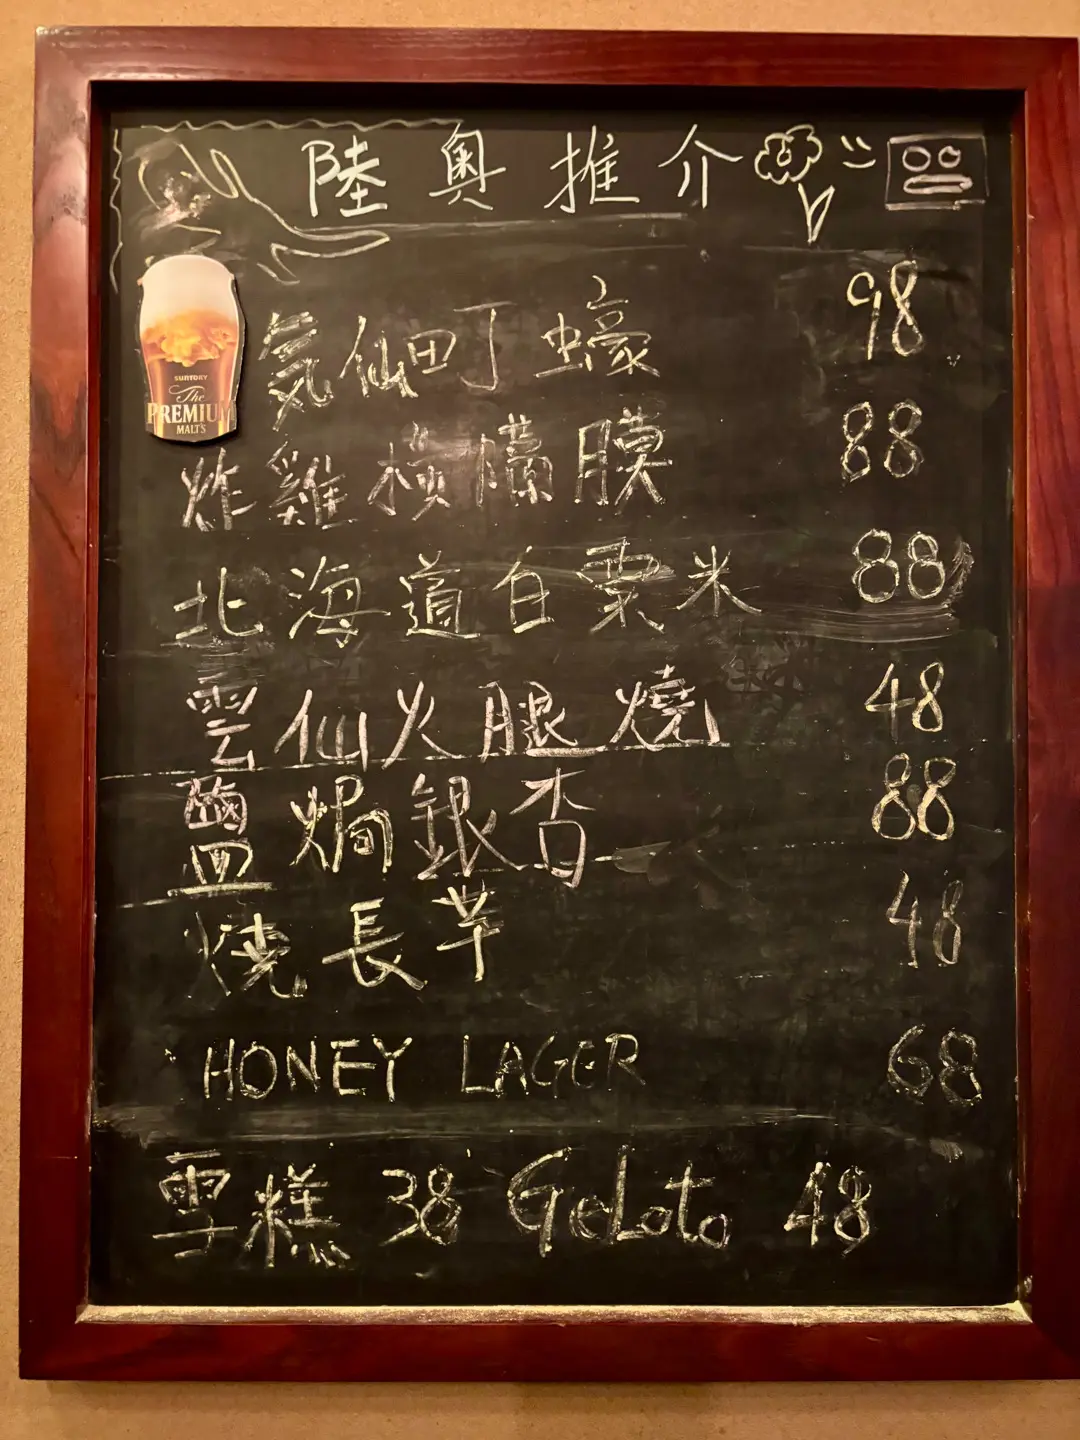 陸奧推介
氣仙町蠔 98
SUNTORY
The
PREMIUM
MALT'S
炸雞橫膈膜 88
北海道白粟米 88
雲仙火腿燒 48
鹽焗銀杏 88
燒長芋 48
HONEY LAGER 68
雪糕 38 Gelato 48